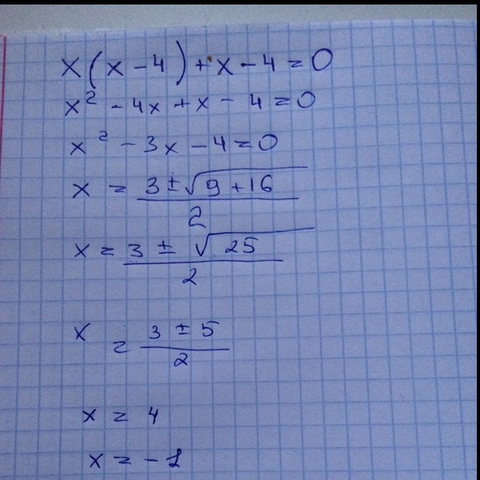 x(x-4)+x-4=0
x²-4x+x-4=0
x²-3x-4=0
x = (3±√(9+16))/2
x = (3±√25)/2
x = (3±5)/2
x = 4
x = -1